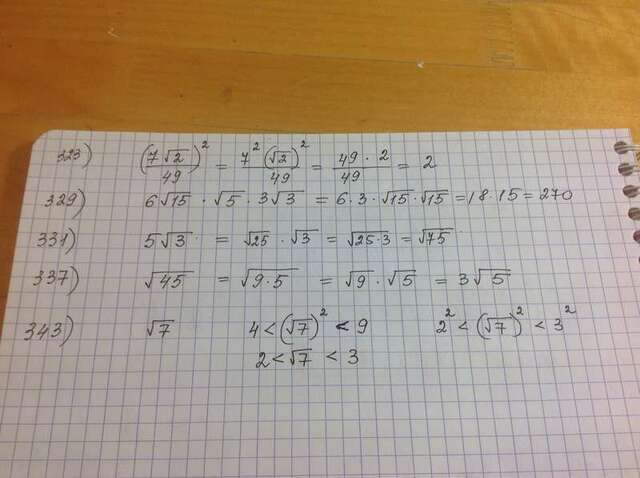 323) (7√2/49)² = 7²(√2)²/49 = 49 · 2/49 = 2
329) 6√15 · √5 · 3√3 = 6·3·√15·√15 = 18·15 = 270
331) 5√3 = √25 · √3 = √25·3 = √75
337) √45 = √9·5 = √9 · √5 = 3√5
343) √7 4 < (√7)² < 9 2² < (√7)² < 3²
2 < √7 < 3